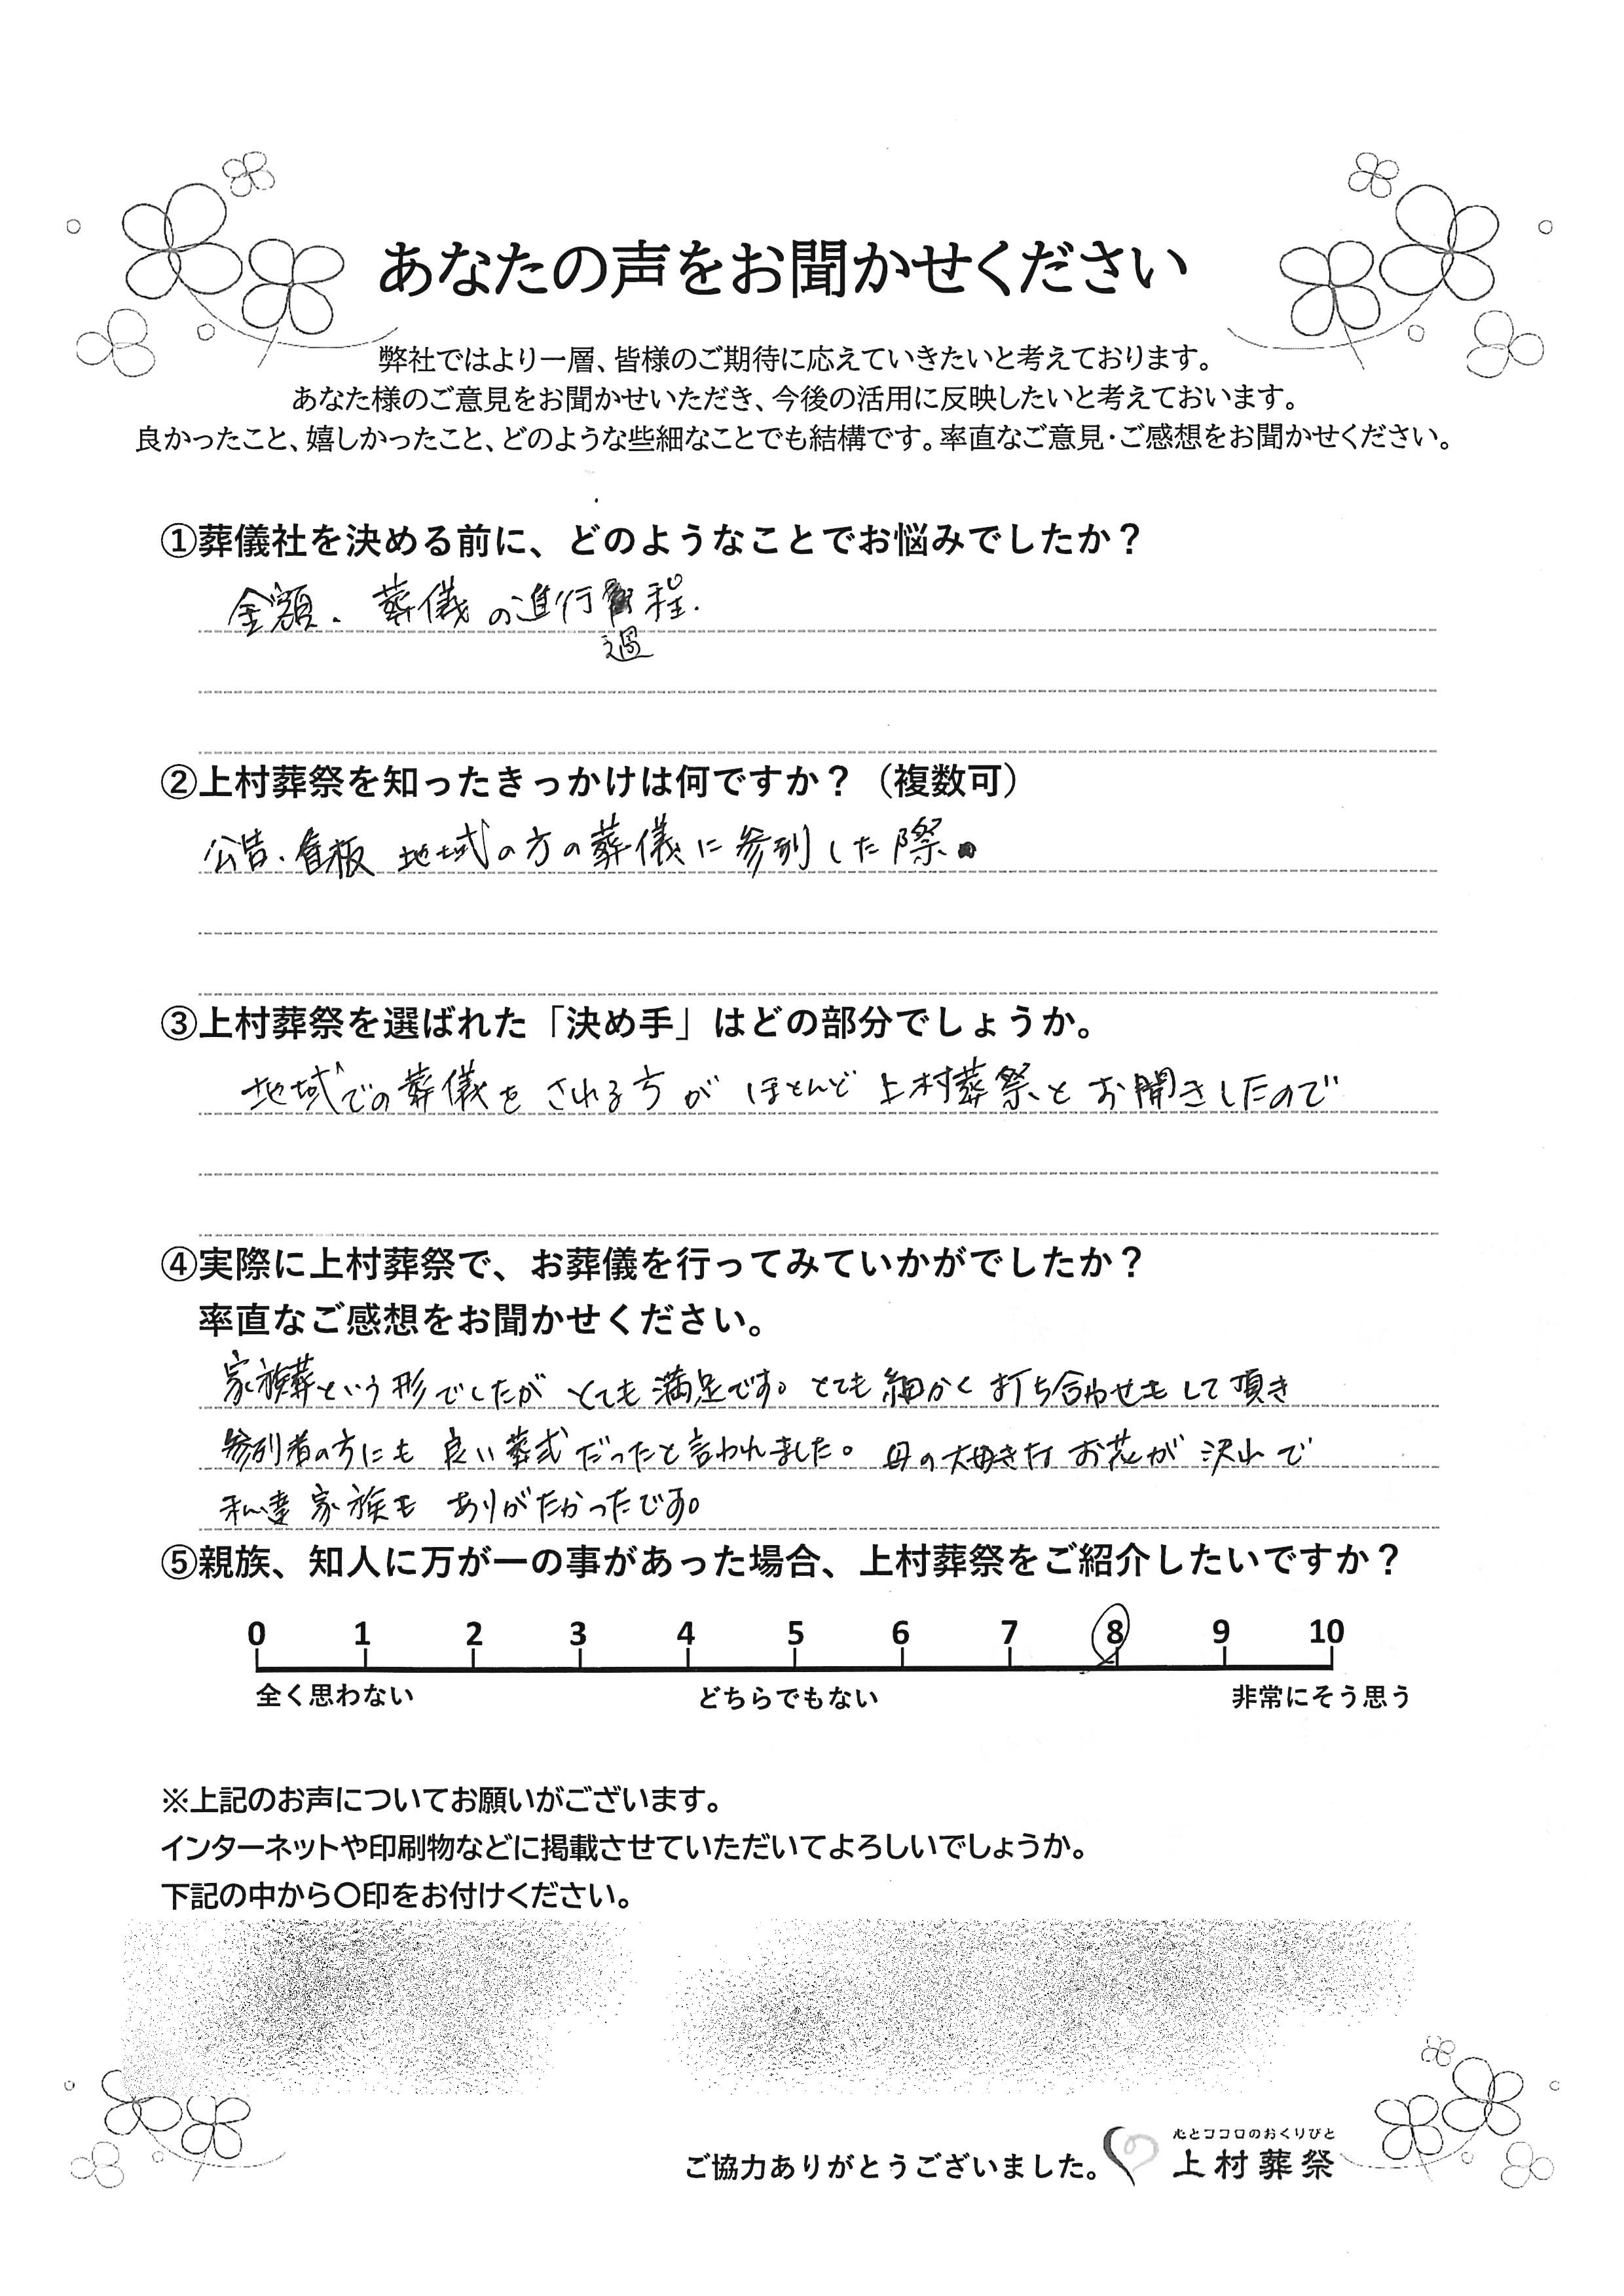 あなたの声をお聞かせください
弊社ではより一層、皆様のご期待に応えていきたいと考えております。
あなた様のご意見をお聞かせいただき、今後の活用に反映したいと考えておいます。
良かったこと、嬉しかったこと、どのような些細なことでも結構です。率直なご意見・ご感想をお聞かせください。
①葬儀社を決める前に、どのようなことでお悩みでしたか？
金額、葬儀の進行過程.
②上村葬祭を知ったきっかけは何ですか？（複数可）
公告、看板 地域の方の葬儀に参列した際。
③上村葬祭を選ばれた「決め手」はどの部分でしょうか。
地域での葬儀をされる方が ほとんど 上村葬祭と お聞きしたので
④実際に上村葬祭で、お葬儀を行ってみていかがでしたか？
率直なご感想をお聞かせください。
家族葬という形でしたが とても満足です。とても細かく打ち合わせもして頂き
参列者の方にも 良い葬式だったと言われました。母の大好きな お花が 沢山で
私達家族も ありがたかったです。
⑤親族、知人に万が一の事があった場合、上村葬祭をご紹介したいですか？
0 1 2 3 4 5 6 7 8 9 10
全く思わない どちらでもない 非常にそう思う
※上記のお声についてお願いがございます。
インターネットや印刷物などに掲載させていただいてよろしいでしょうか。
下記の中から〇印をお付けください。
心とココロのおくりびと
ご協力ありがとうございました。 上村葬祭